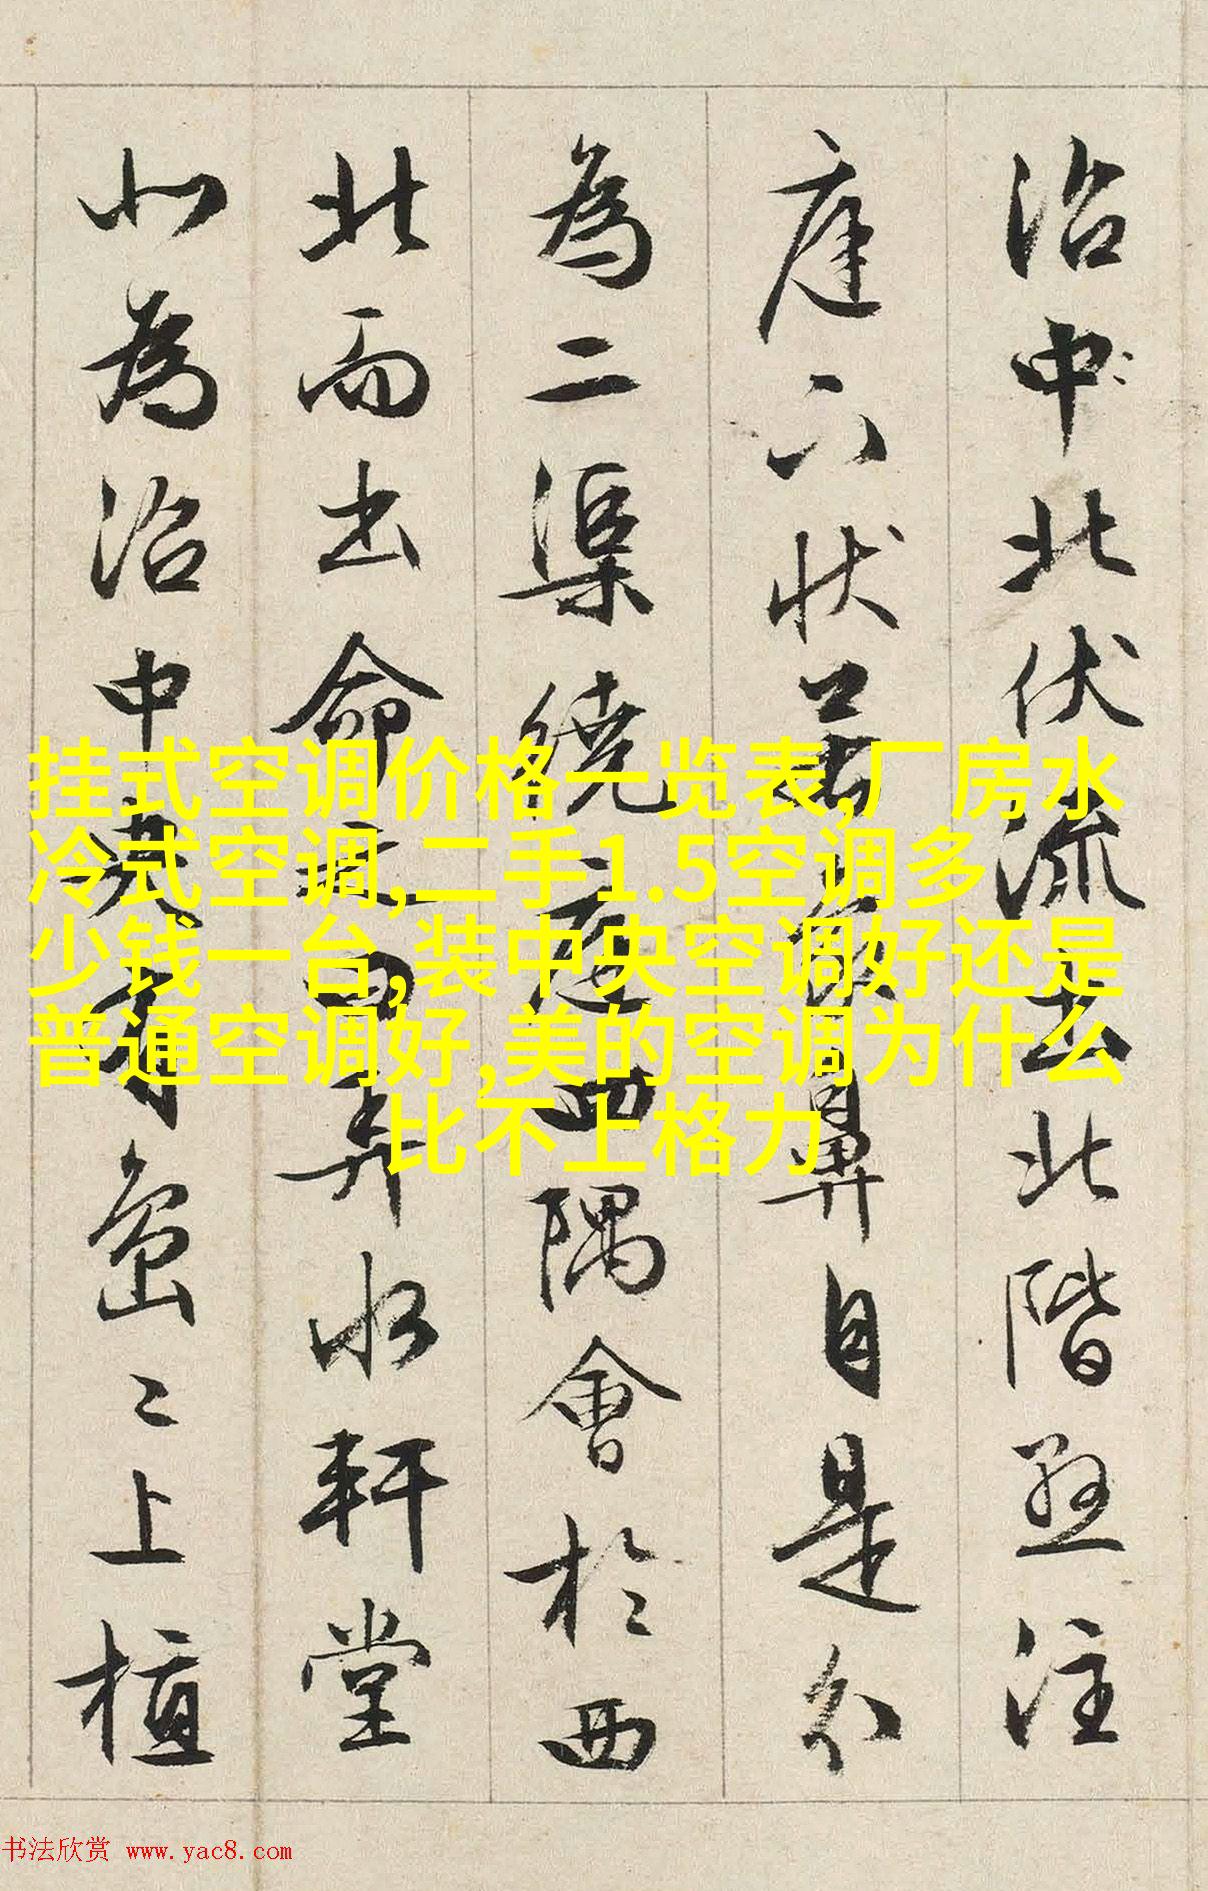 沼中北伏流出北階懸注
庭下狀若象鼻自是分
為二渠繞庭四隅會於西
北而出命之曰弄水軒堂
北為沼中央有島〻上植
挂式空调价格一览表,厂房水
冷式空调,二手1.5空调多
少钱一台,装中央空调好还是
普通空调好,美的空调为什么
比不上格力
书法欣赏 www.yac8.com